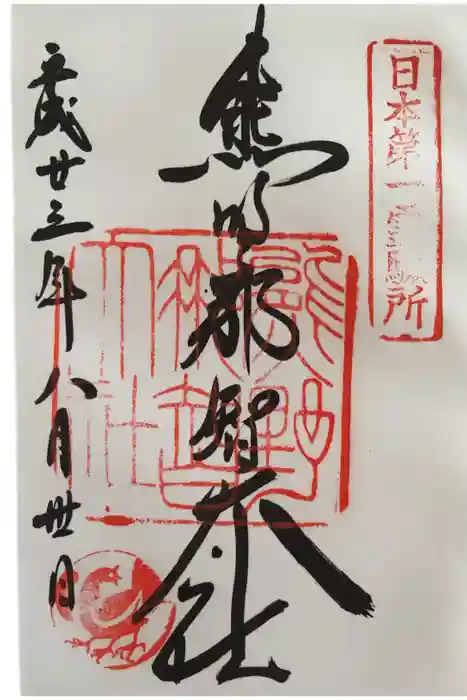 日本第一霊験所
熊野那智大社
熊野
那智
大社
平成廿三年八月丗日